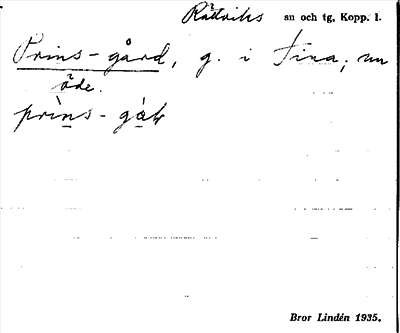 Rättviks sn och tg, Kopp. l.
Prins-gård, g. i Tina; nu
öde.
prìns-gàḷv
Bror Lindén 1935.